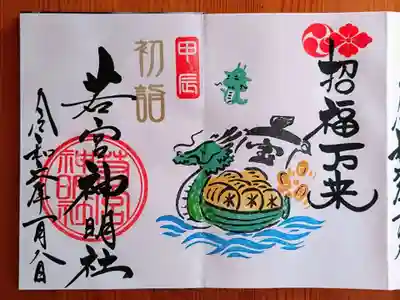 招福万来
宝
米
米
甲辰
初詣
若宮神明社
若宮神明社
令和六年一月八日